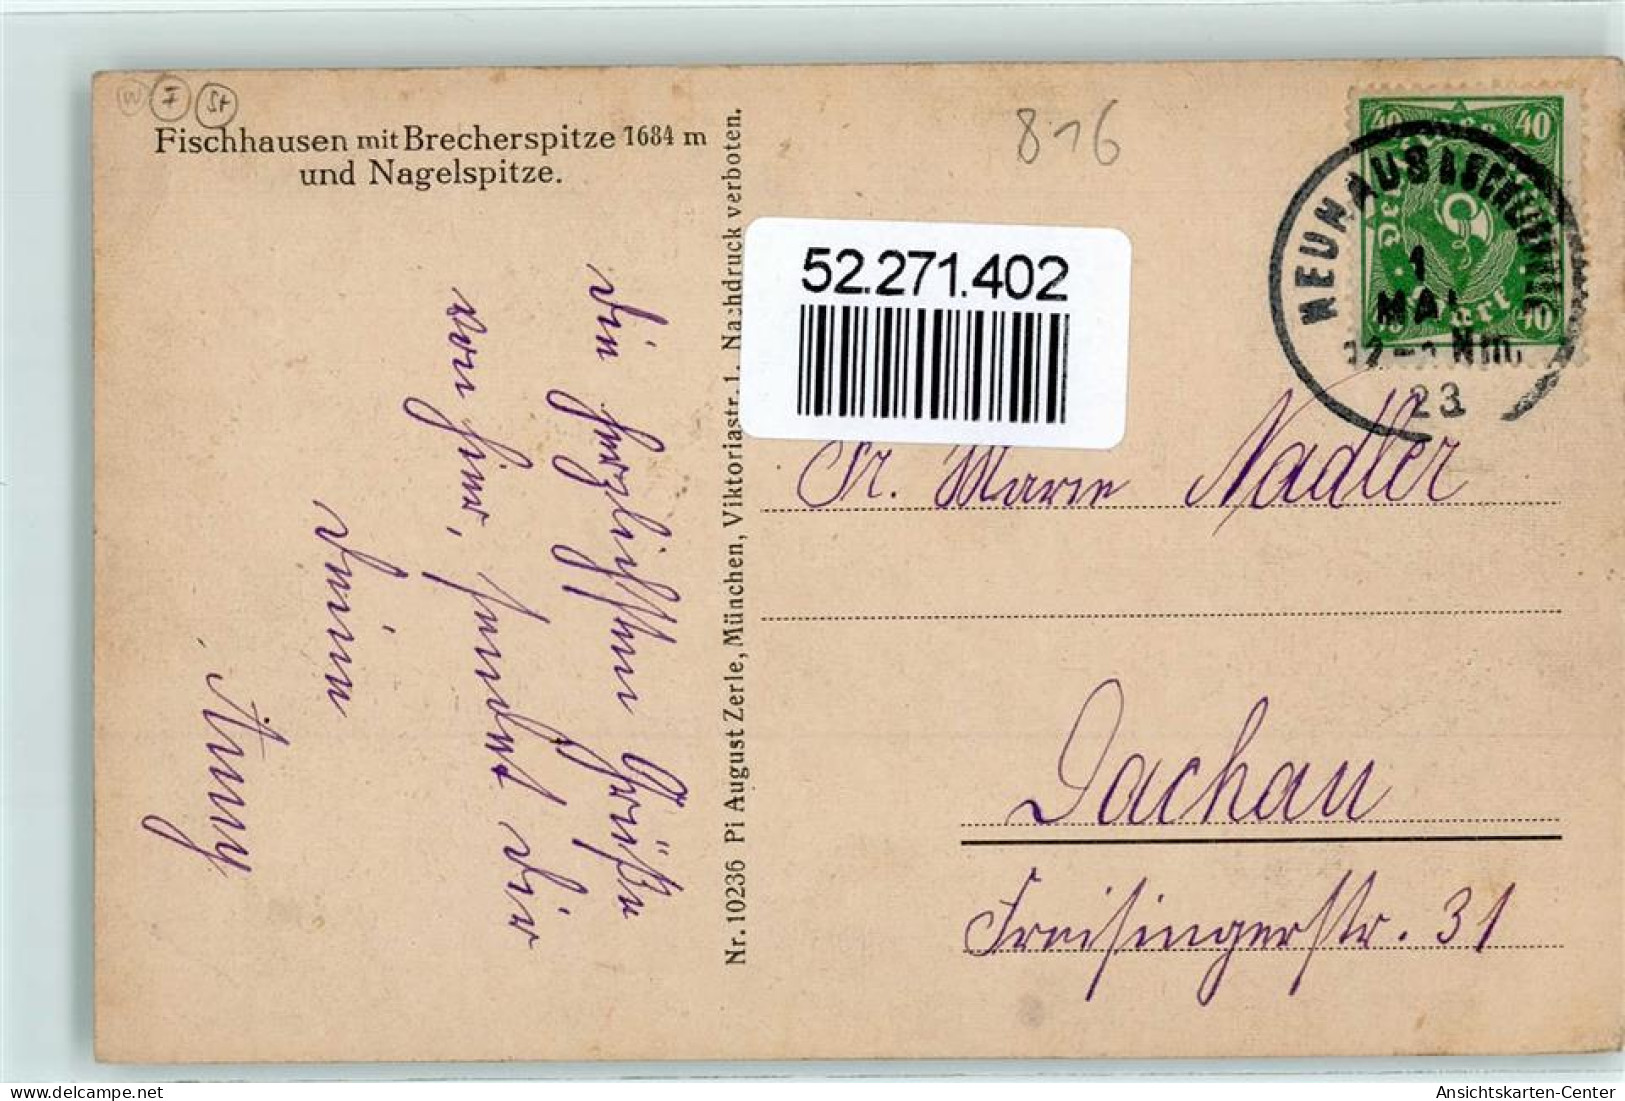 W F St
Fischhausen mit Brecherspitze 1684 m
und Nagelspitze.
816
52.271.402
40 40
Deutsches Reich
Mark
40 40
NEUHAUS b. SCHLIERSEE
1
MAI
12-1 Nm.
23
Die herzlichsten Grüße
von hier, sendet Dir
Deine
Anny
Nr. 10236 Pi August Zerle, München, Viktoriastr. 1. Nachdruck verboten.
Fr. Marie Nadler
Dachau
Freisingerstr. 31
delcampe.net
Ansichtskarten-Center